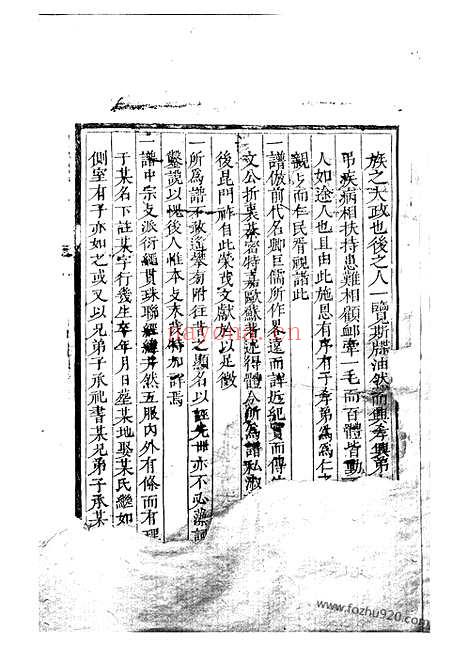 族之大政也後之人一覽斯牒油然而興孝興弟
弔疾病相扶持患難相顧卹牽一毛而百體皆動
人如途人也且由此施恩有序有子孝弟為為仁之
親而仁民胥視諸此
一譜倣前代名卿巨儒所作畧遠而詳近紀實而傳
文公折衷蔡密特嘉歐蘇著述得體今所為譜私淑
後毘門祚自此孳或文獻以足徵
一所為譜不敢遙攀旁附往昔之顯名以誣先世亦不必染
鑿說以愧後人惟本支末特加詳焉
一譜中宗支派衍繩貫珠聯經緯井然五服內外有條而有理
于某名下註某字行幾生卒年月日塟某地娶某氏繼如
側室有子亦如之或又以兄弟子承祀書某兄弟子承某
nayona.cn
www.fozhu920.com